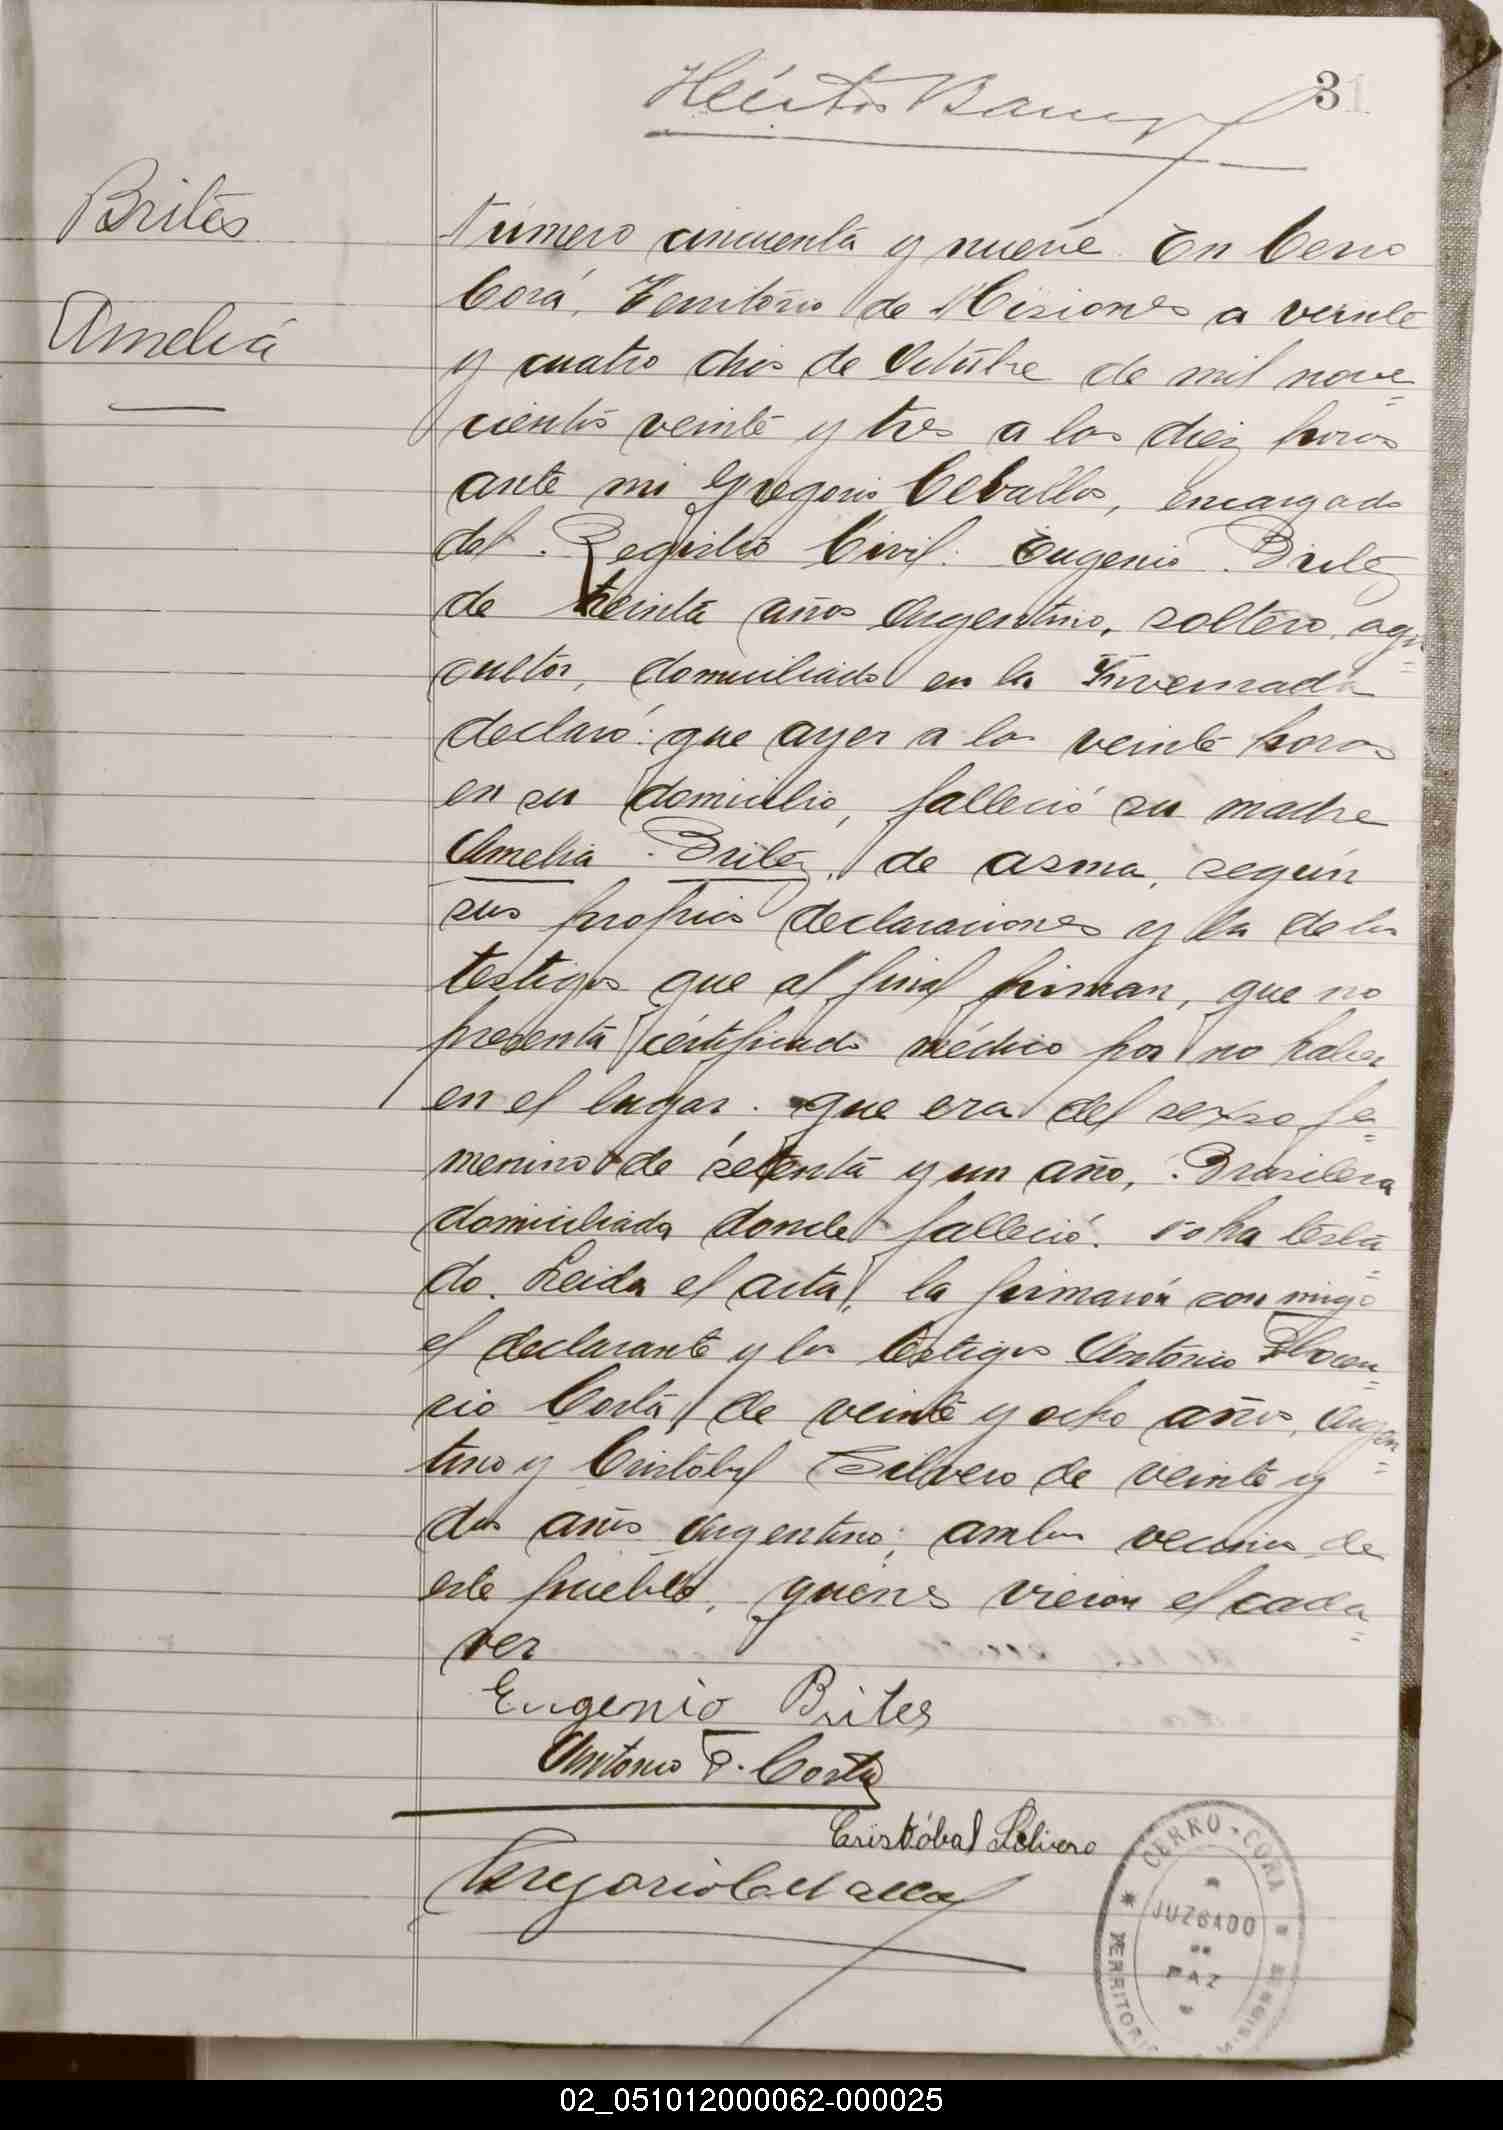 31
Brites
Amelia
Número cincuenta y nueve. En Cerro
Corá, Territorio de Misiones a veinte
y cuatro dias de Octubre de mil nove=
cientos veinte y tres a las diez horas
ante mi Gregorio Ceballos, encargado
del Registro Civil: Eugenio Britez
de treinta años Argentino, soltero, agri=
cultor, domiciliado en la Invernada
declaró: que ayer a las veinte horas
en su domicilio, falleció su madre
Amelia Britez, de asma, según
sus propias declaraciones y la de los
testigos que al final firman, que no
presenta certificado médico por no haber
en el lugar. que era del sexso fe=
menino de setenta y un año, Brasilera
domiciliada donde falleció. No ha testa=
do. Leida el acta, la firmarón con migo
el declarante y los testigos Antonio Floren=
cio Costa, de veinte y ocho años, Argen=
tino y Cristóbal Silvero de veinte y
dos años Argentino; ambos vecinos de
este pueblo, quienes vieron el cada=
ver
Eugenio Brites
Antonio F. Costa
Cristóbal Silvero
Gregorio Ceballos
CERRO-CORA
JUZGADO
DE
PAZ
TERRITORIO MISIONES
02_051012000062-000025